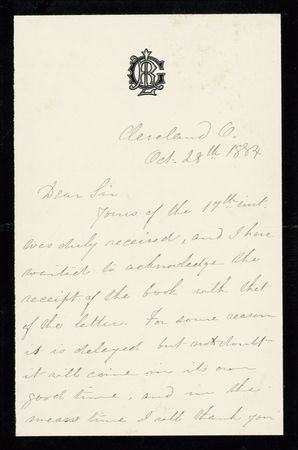 Cleveland O.
Oct. 28th 1884
Dear Sir
Yours of the 17th inst.
was duly received, and I have
waited to acknowledge the
receipt of the book with that
of the letter. For some reason
it is delayed but no doubt
it will come in its own
good time, and in the
mean time I will thank you